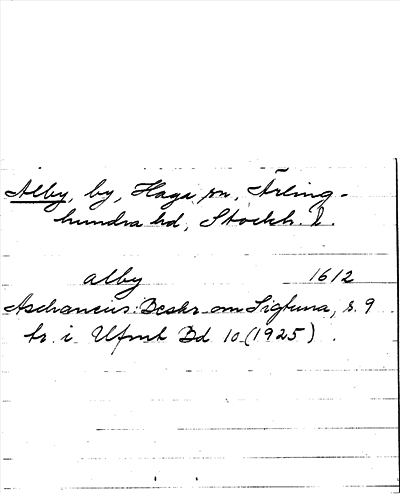 Alby, by, Haga sn, Ärling-
hundra hd, Stockh. l.
alby 1612
Aschaneus: Beskr om Sigtuna, s. 9
tr. i Ufmt Bd 10 (1925).